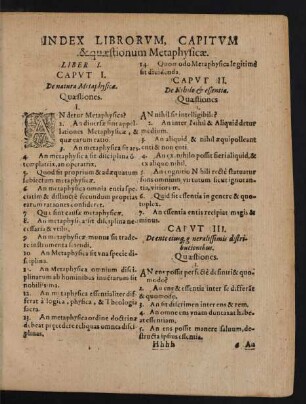 INDEX LIBRORVM, CAPITVM
&quæstionum Metaphysicæ.
LIBER I.
CAPVT I.
De natura Metaphysicæ.
Quæstiones.
1.
AN detur Metaphysica?
2. An diversæ sint appel-
lationes Metaphysicæ, &
quæ earum ratio.
3. An metaphysica sit ars.
4. An metaphysica sit disciplina
templatrix, an operatrix.
5. Quod sit proprium & adæquatum
subiectum metaphysicæ.
6. An metaphysica omnia entis spe-
ciatim & distincte cognoscenda
finitione, divisione & ostensione.
7. Qui sint causæ metaphysicæ.
8. An sit metaphysica
9. An metaphysicæ munus sit trade-
re instrumenta sciendi.
10. An Metaphysica sit vna specie di-
sciplina.
11. An metaphysica omnium disci-
plinarum ab hominibus inuentarum sit
nobilissima.
12. An metaphysica essentialiter differ-
at à logica, physica, & Theologia
sacra.
13. An metaphysica ordine doctrinæ
debeat præcedere reliquas omnes disci-
plinas.
14. Quomodo Metaphysica legitimè
sit diuidenda.
CAPVT II.
De Nihilo & essentia.
Quæstiones
1.
AN nihil sit intelligibile?
2. An inter Nihil & Aliquid detur
medium.
3. An aliquid & nihil æquipolleant
enti & non enti.
4. An ex nihilo possit fieri aliquid, &
ex aliquo nihil.
5. An cognitio Nihili rectè statuatur
summa omnium, virtutum sicut ignorantia,
vitiorum.
6. Quid sit essentia in genere & quo-
tuplex.
7. An essentia entis recipiat magis &
minus.
CAPVT III.
De ente eiusq; generalissimis distri-
butionibus.
Quæstiones.
1.
AN ens possit perfectè definiri & quo-
modo?
2. An ens & essentia inter se differāt
& quomodo.
3. An sit discrimen inter ens & rem.
4. An omne ens vnam duntaxat habe-
at essentiam.
5. An ens possit manere saluum, de-
structa ipsius essentia.
Hhhh
6 An